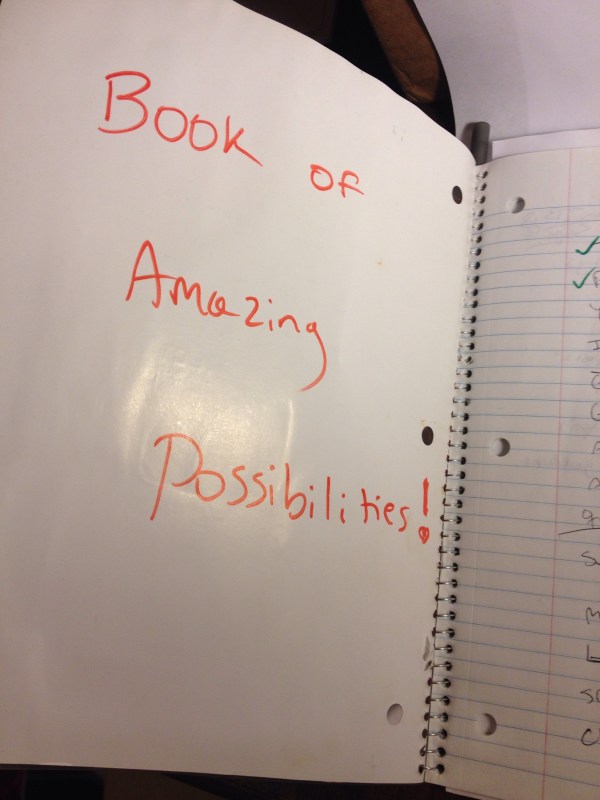 Book of
Amazing
Possibilities!